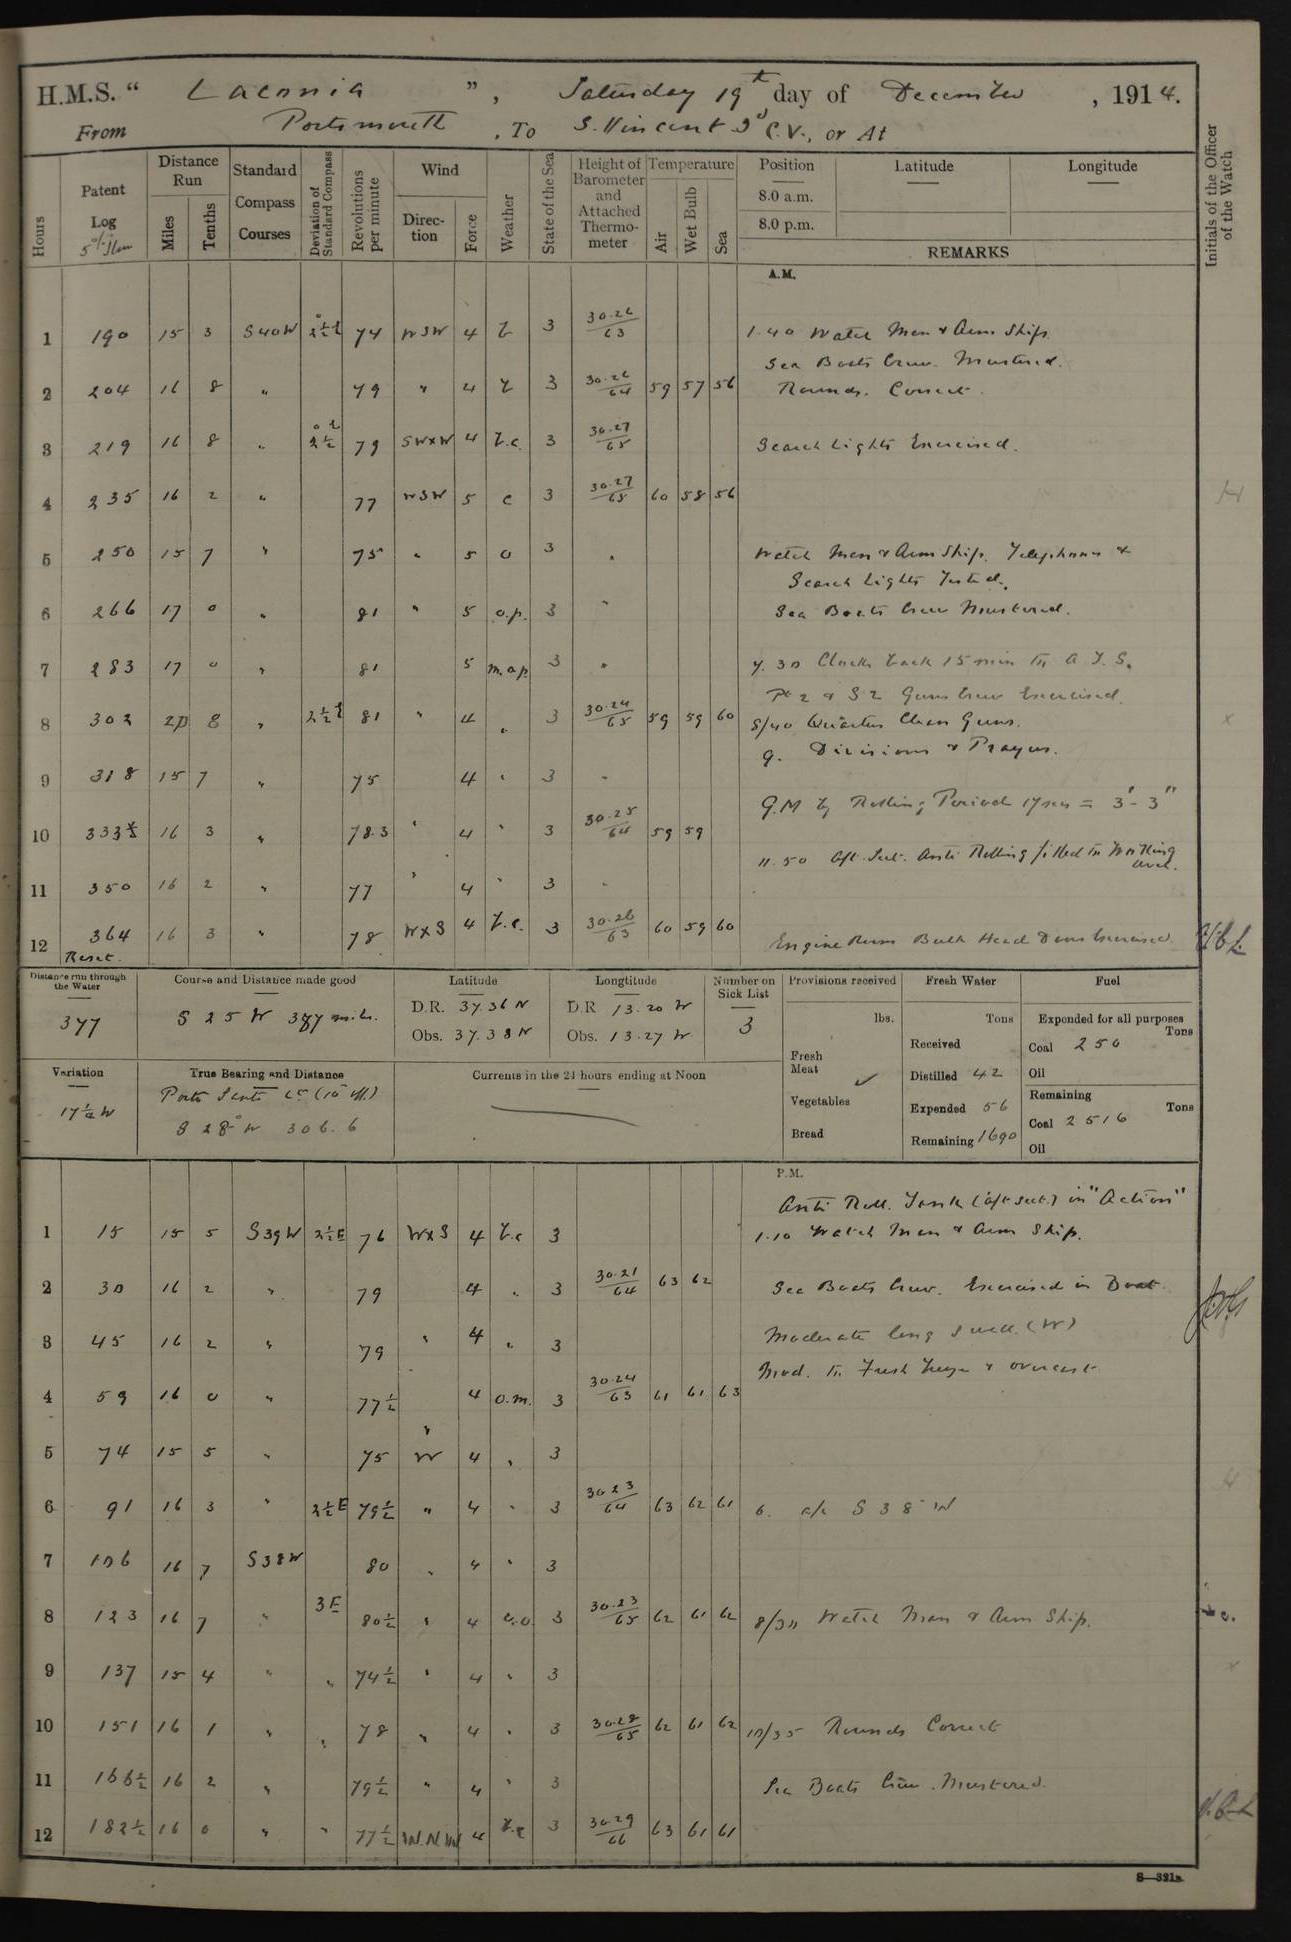 H.M.S. “ Laconia ”, Saturday 19th day of December, 1914.
From Portsmouth, To S. Vincent Id C.V., or At
Hours
Patent Log
5% Slow
Distance Run
Miles
Tenths
Standard Compass Courses
Deviation of Standard Compass
Revolutions per minute
Wind
Direction
Force
Weather
State of the Sea
Height of Barometer and Attached Thermometer
Temperature
Air
Wet Bulb
Sea
Position
8.0 a.m.
8.0 p.m.
Latitude
Longitude
REMARKS
Initials of the Officer of the Watch
A.M.
1 190 15 3 S40W 2½E 74 WSW 4 b 3 30.26/63 1.40 Watch Man & Arm Ship
Sea Boats Crew Mustered.
2 204 16 8 " 79 " 4 b 3 30.26/64 59 57 56 Rounds. Correct.
3 219 16 8 " 2½E 79 SWxW 4 b.c. 3 30.27/65 Search Lights Exercised.
4 235 16 2 " 77 WSW 5 c 3 30.27/65 60 58 56
5 250 15 7 " 75 " 5 o 3 " Watch Man & Arm Ship. Telephones &
Search Lights Tested.
6 266 17 0 " 81 " 5 o.p. 3 " Sea Boats Crew Mustered.
7 283 17 0 " 81 5 m.o.p. 3 " 7.30 Clocks back 15 min to A.T.S.
P2 & S2 Guns Crew Exercised.
8 302 20 8 " 2½E 81 " 4 " 3 30.24/65 59 59 60 8/40 Quarters Clean Guns.
9. Divisions & Prayers.
9 318 15 7 " 75 4 " 3 "
G.M by Rolling Period 17 secs = 3'-3"
10 333½ 16 3 " 78.3 " 4 " 3 30.25/64 59 59
11.50 Aft. Sect. Anti Rolling filled to Working level.
11 350 16 2 " 77 " 4 " 3 "
12 364 16 3 " 78 WxS 4 b.c. 3 30.26/63 60 59 60 Engine Room Bulk Head Doors Exercised
Reset.
Distance run through the Water
377
Course and Distance made good
S 25 W 387 miles.
Latitude
D.R. 37.36 N
Obs. 37.38 N
Longtitude
D.R 13.20 W
Obs. 13.27 W
Number on Sick List
3
Provisions received
lbs.
Fresh Meat ✓
Vegetables
Bread
Fresh Water
Tons
Received
Distilled 42
Expended 56
Remaining 1690
Fuel
Exponded for all purposes
Tons
Coal 250
Oil
Remaining
Tons
Coal 2516
Oil
Variation
17¼ W
True Bearing and Distance
Porto Santo Lt (10' off)
S 28° W 306.6
Currents in the 24 hours ending at Noon
P.M.
Anti Roll. Tank (aft sect.) in "Action"
1 15 15 5 S39W 2½E 76 WxS 4 b.c 3 1.10 Watch Man & Arm Ship.
2 30 16 2 " 79 4 " 3 30.21/64 63 62 Sea Boats Crew. Exercised in Boat.
3 45 16 2 " 79 " 4 " 3 Moderate long swell (W)
Mod. to Fresh breeze & overcast
4 59 16 0 " 77½ " 4 o.m. 3 30.24/63 61 61 63
5 74 15 5 " 75 W 4 " 3
6 91 16 3 " 2½E 79½ " 4 " 3 30 23/64 63 62 61 6. a/c S 38° W
7 106 16 7 S38W 80 " 4 " 3
8 123 16 7 " 3E 80½ " 4 c.o. 3 30.23/65 62 61 62 8/30 Watch Man & Arm Ship.
9 137 15 4 " " 74½ " 4 " 3
10 151 16 1 " " 78 " 4 " 3 30.28/65 62 61 62 10/35 Rounds Correct
11 166½ 16 2 " 79½ " 4 " 3 Sea Boats Crew. Mustered.
12 182½ 16 0 " " 77½ W.N.W 4 b.c 3 30.29/66 63 61 61
S—321a.